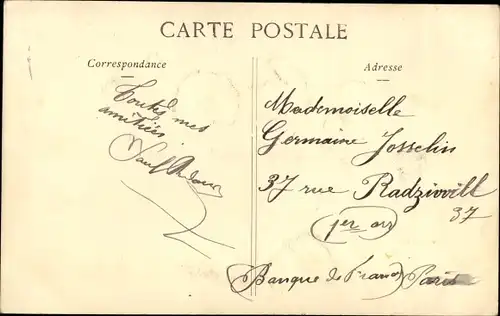 CARTE POSTALE
Correspondance
Adresse
Toutes mes
amitiés
Paul
Mademoiselle
Germaine Josselin
37 rue Radziwill
37
(1er arr)
(Banque de France) Paris